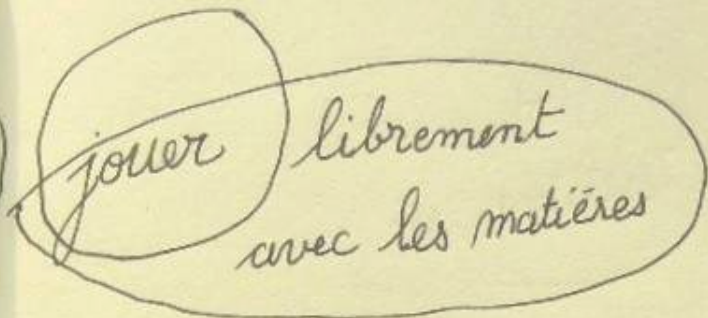 jouer librement
avec les matières